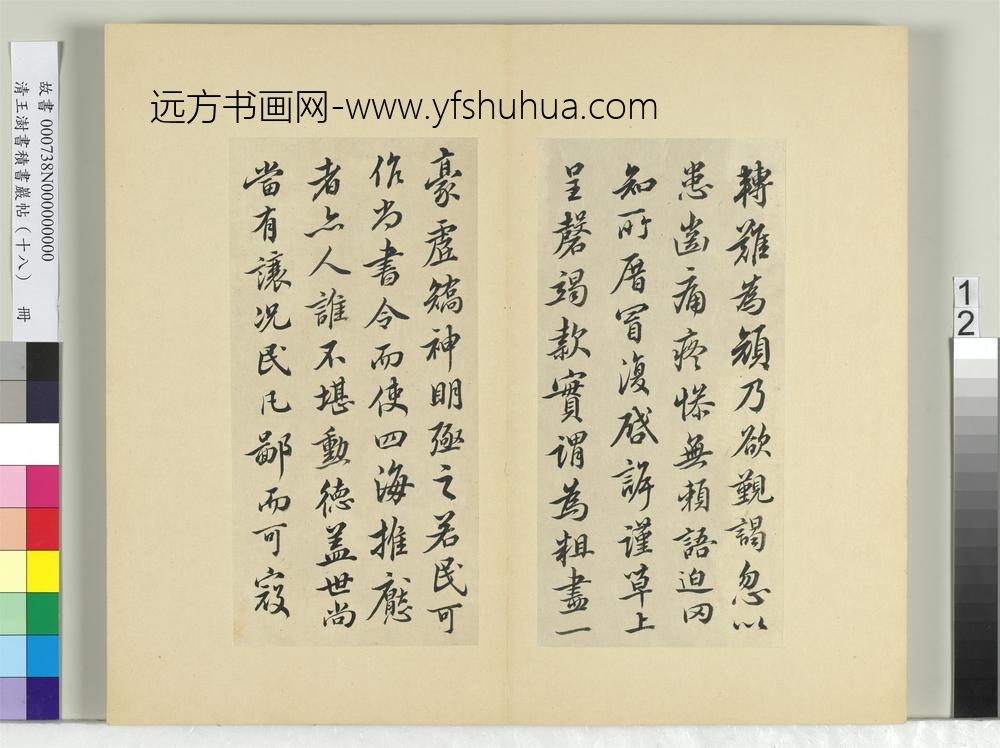 远方书画网-www.yfshuhua.com
故書 000738N000000000
清王澍書積書巖帖（十八） 冊
1
2
轉難為頎乃欲觀謁忽以
患齒痛疼慘無賴語迫罔
知所厝冒復啓訴謹草上
呈罄竭款實謂為粗盡一
豪虛矯神明殛之若民可
作尚書令而使四海推懨
者亦人誰不堪勳德蓋世尚
當有讓況民凡鄙而可